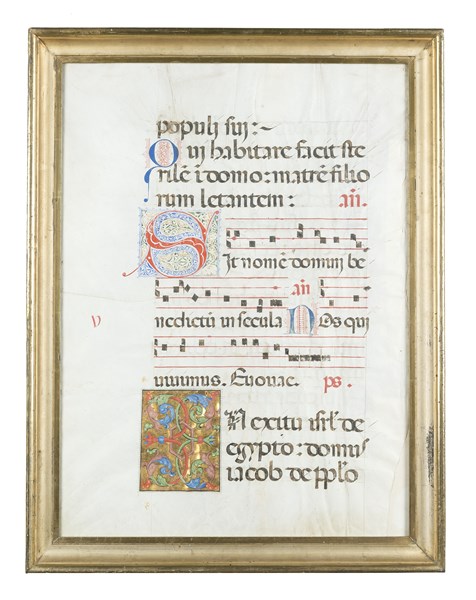 populi sui:~
Qui habitare facit ste
rilē ī domo: matrē filio
rum letantem: añ.
Sit nomē domini be
nedictū in secula añ Nos qui
v
vivimus. Evovae. ps.
IN exitu isrl' de
egypto: domus
iacob de pplo